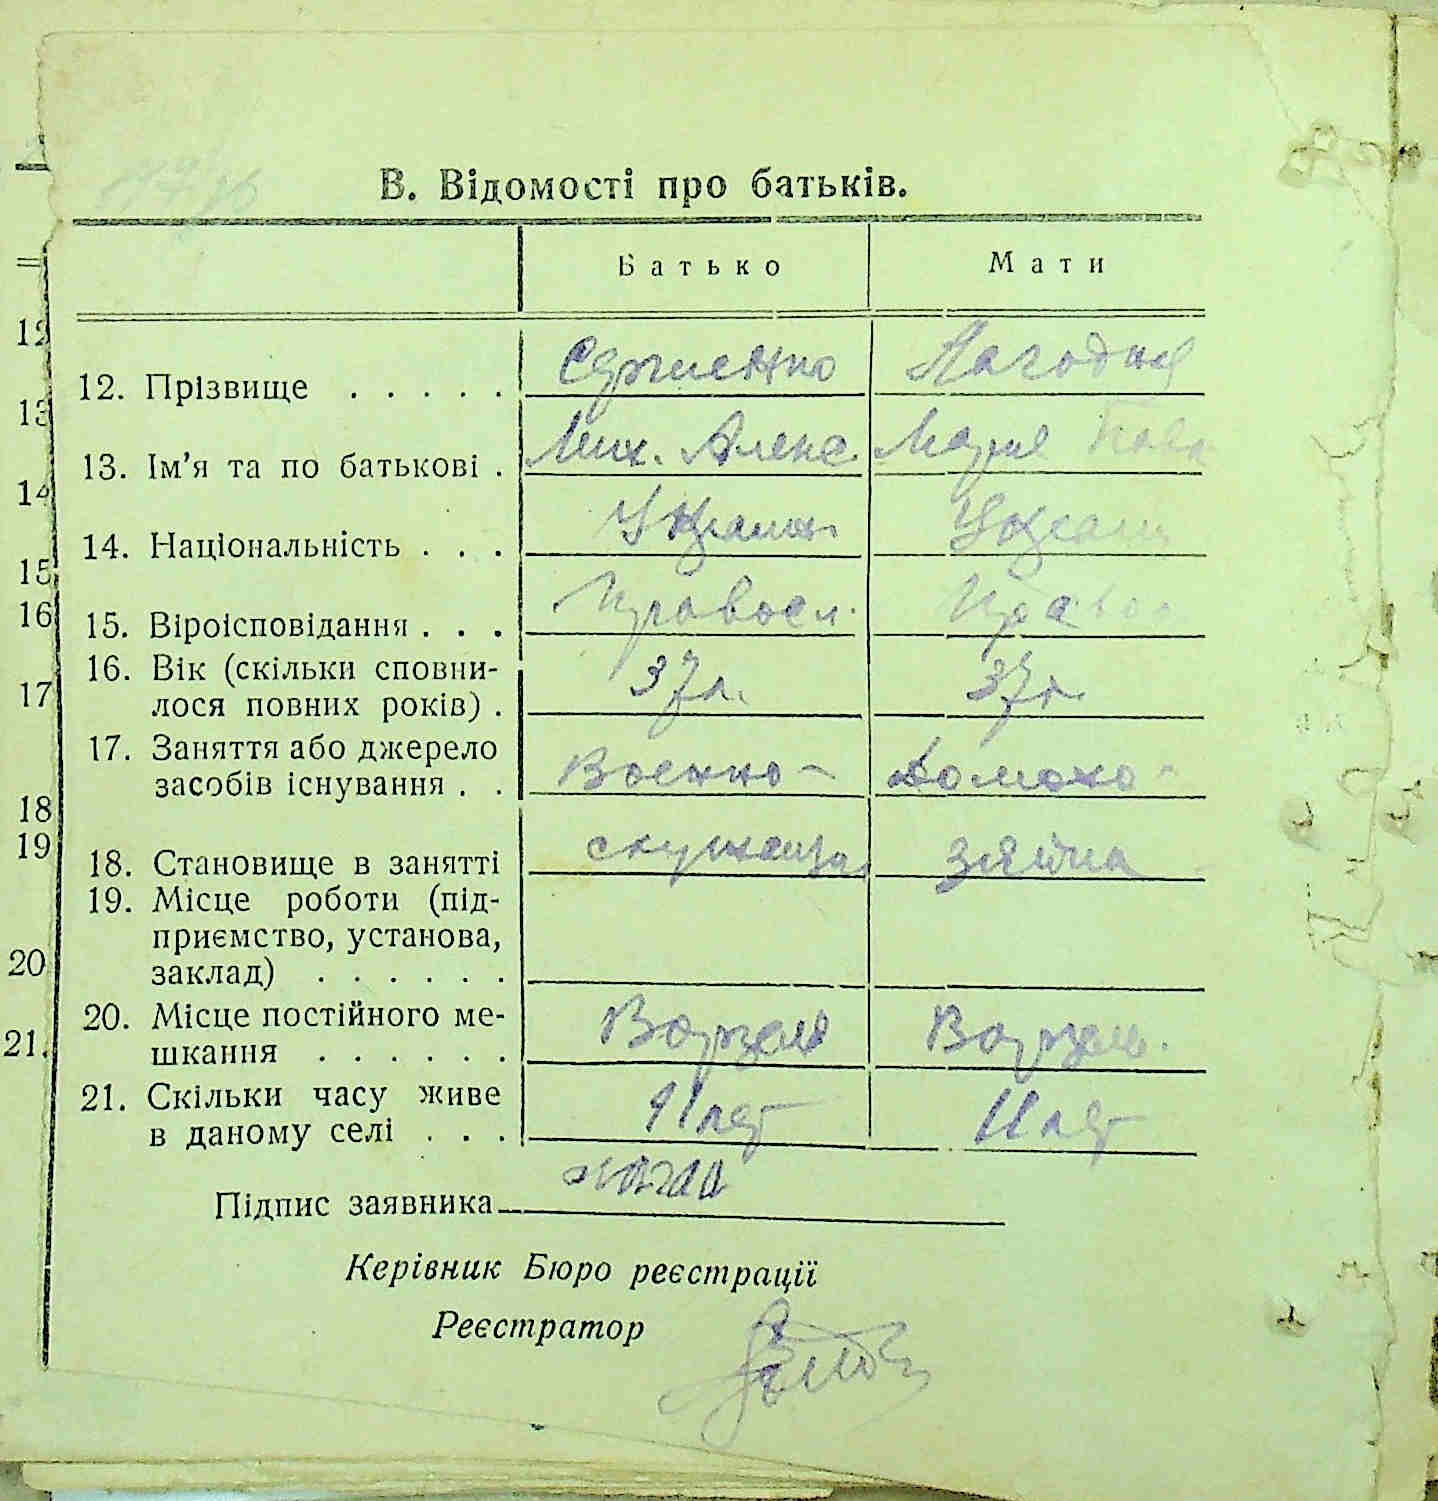 В. Відомості про батьків.
Батько Мати
12. Прізвище . . . . .
13. Ім'я та по батькові . Мих. Алекс. Мария
14. Національність . . . Украин.
15. Віроісповідання . . . Правосл.
16. Вік (скільки сповни-
лося повних років) . 37 л. 37 л.
17. Заняття або джерело
засобів існування . . Военно- Домохо-
18. Становище в занятті зяйка
19. Місце роботи (під-
приємство, установа,
заклад) . . . . . .
20. Місце постійного ме-
шкання . . . . . . Ворзель Ворзель.
21. Скільки часу живе
в даному селі . . . 11 лет 11 лет
Підпис заявника
Керівник Бюро реєстрації
Реєстратор
12
13
14
15
16
17
18
19
20
21.